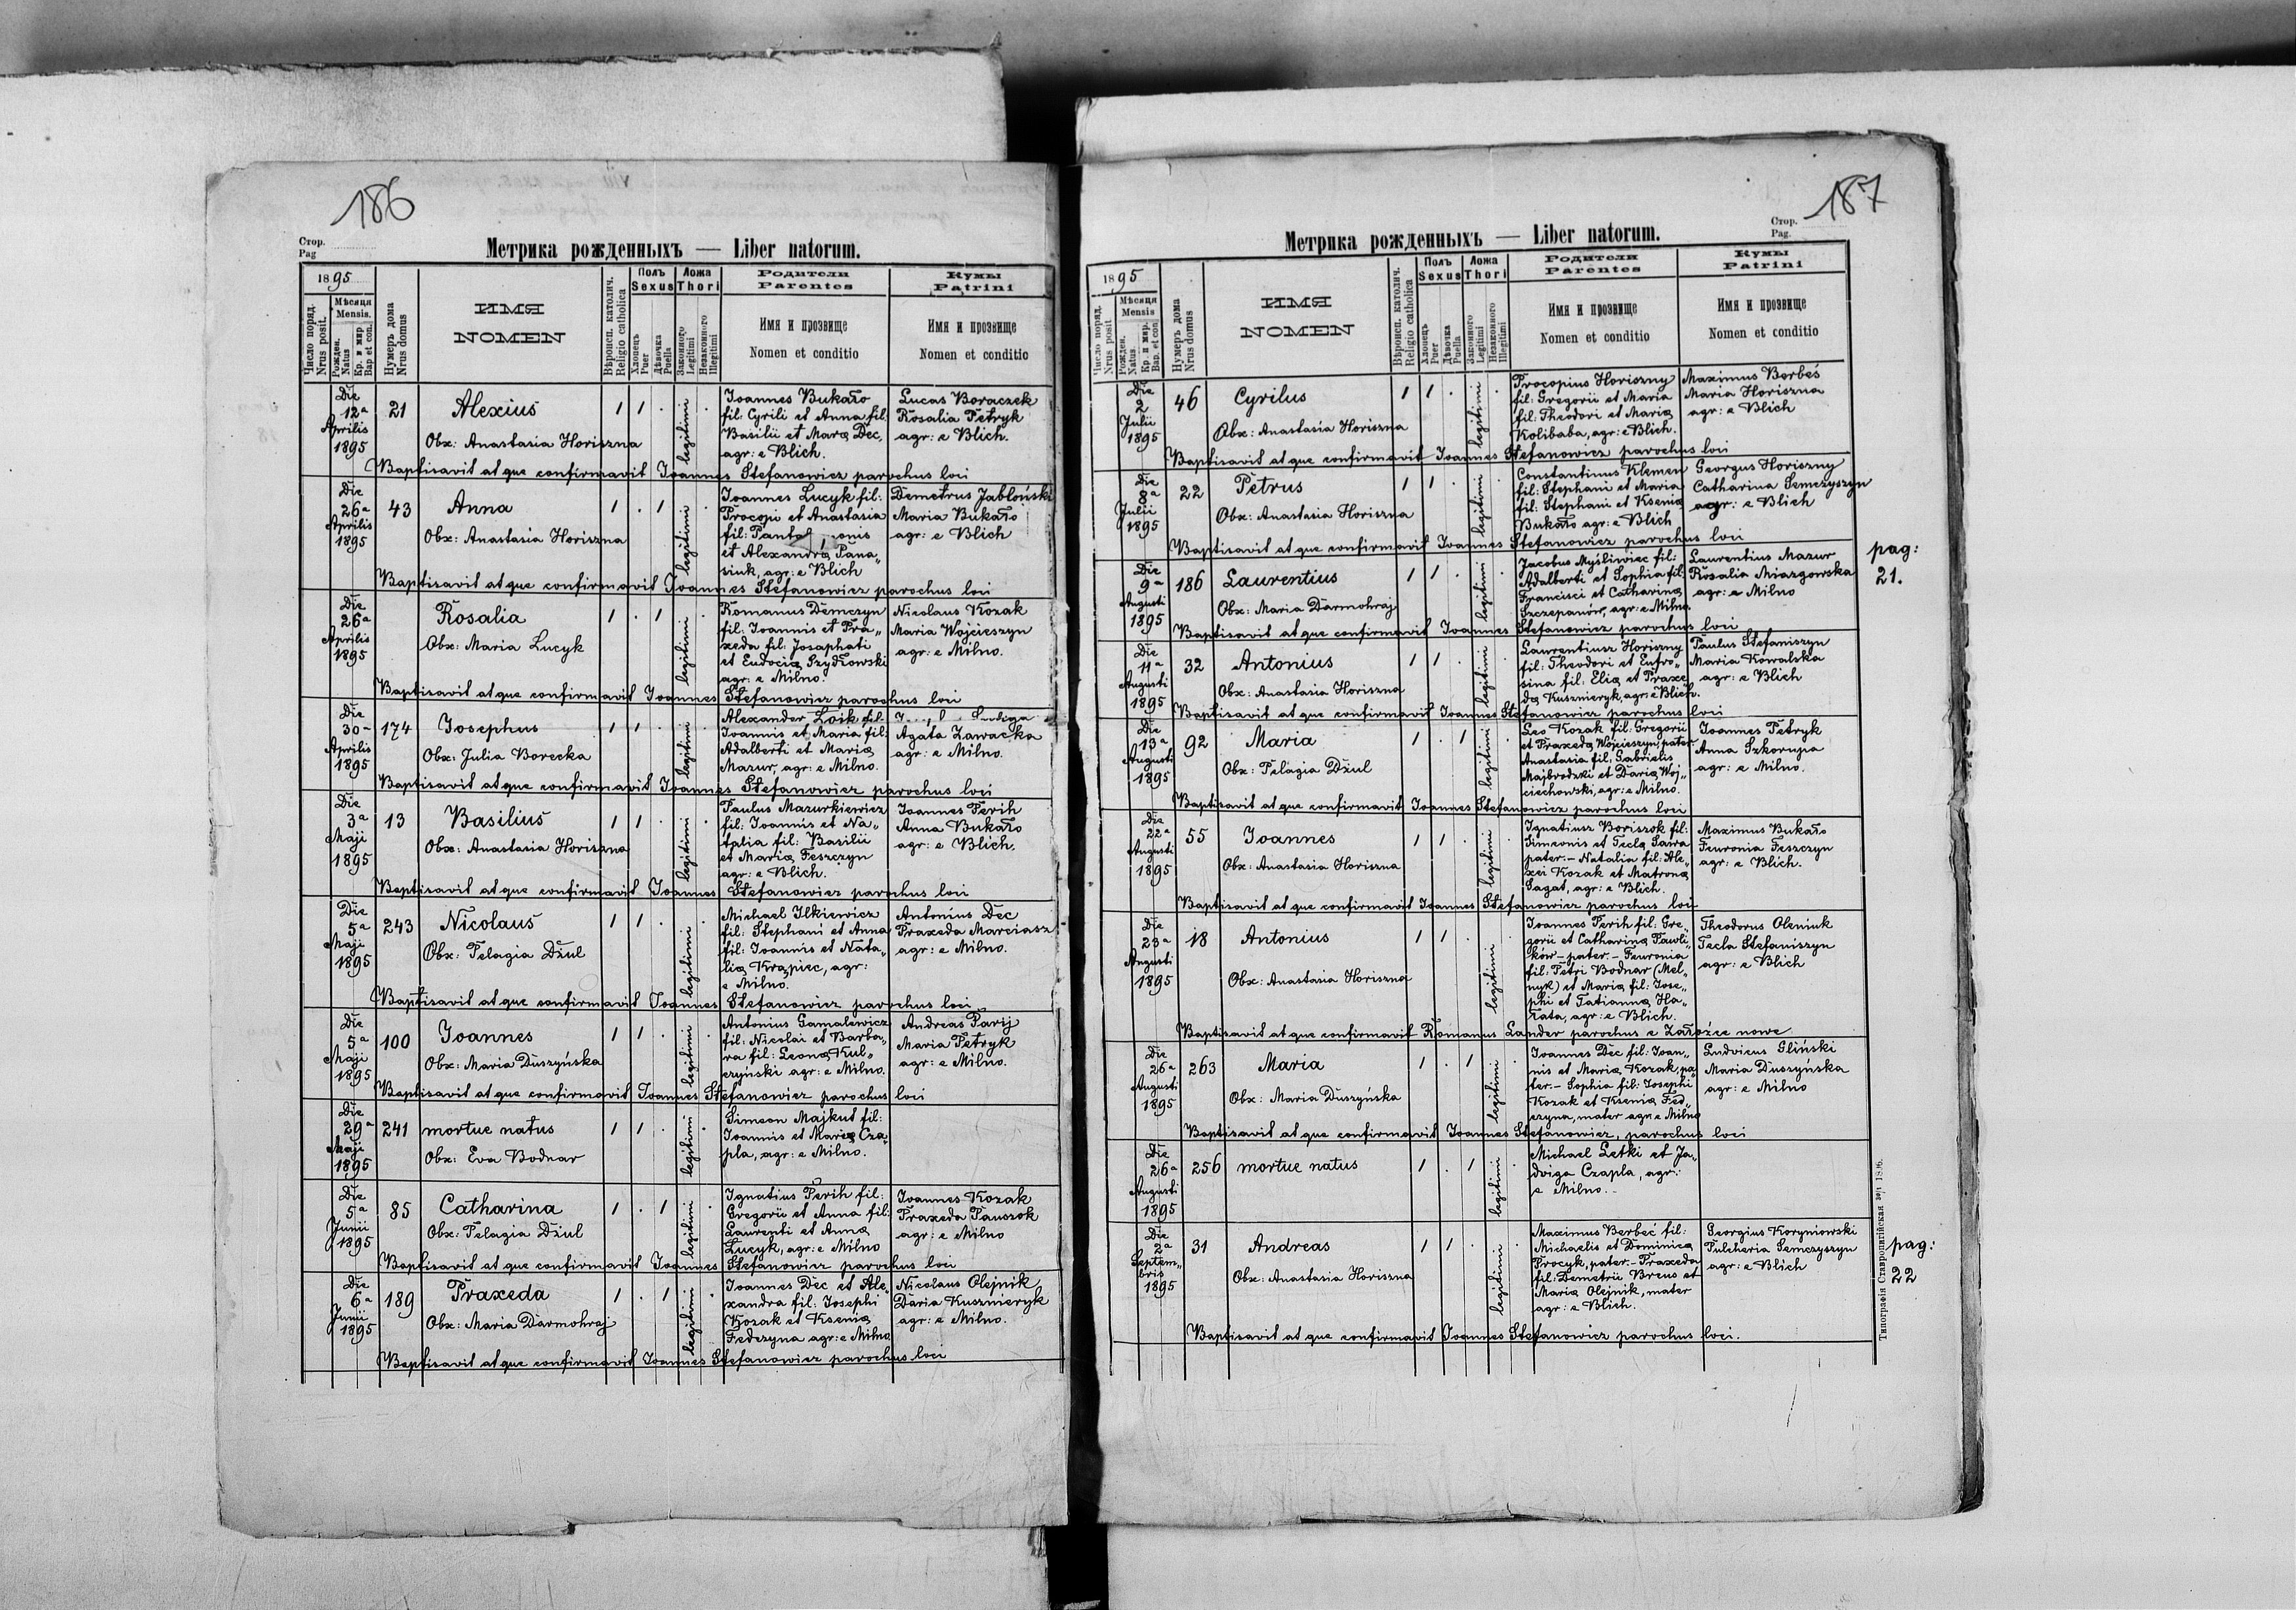 186
Стор.
Pag
Метрика рожденныхъ — Liber natorum.
1895
Число поряд.
Nrus posit.
Мѣсяця
Mensis.
Рожден.
Natus
Кр. и мир
Bap et con.
Нумеръ дома
Nrus domus
ИМЯ
NOMEN
Вѣроисп. католич.
Religio catholica
Полъ
Sexus
Хлопецъ
Puer
Дѣвочка
Puella
Ложа
Thori
Законного
Legitimi
Незаконного
Illegitimi
Родители
Parentes
Имя и прозвище
Nomen et conditio
Кумы
Patrini
Имя и прозвище
Nomen et conditio
Die
12a
Aprilis
1895
21
Alexius
Obx: Anastasia Horiszna
1 1 .
legitimi
Joannes Bukało
fil: Cyrili et Anna fil:
Basilii et Maria Dec,
agr: e Blich.
Lucas Boraczek
Rosalia Petryk
agr: e Blich.
Baptisavit atque confirmavit Joannes Stefanowicz parochus loci
Die
26a
Aprilis
1895
43
Anna
Obx: Anastasia Horiszna
1 . 1
legitimi
Joannes Lucyk fil:
Procopi et Anastasia
fil: onis
et Alexandra Pana„
siuk, agr: e Blich
Demetrus Jabłoński
Maria Bukało
agr: e Blich
Baptisavit atque confirmavit Joannes Stefanowicz parochus loci
Die
26a
Aprilis
1895
Rosalia
Obx: Maria Lucyk
1 . 1
legitimi
Romanus Demczyn
fil: Joannis et Pra„
xeda fil: Josaphati
et Eudocia Szydłowski
agr: e Milno.
Nicolaus Kozak
Maria Wojcieszyn
agr: e Milno.
Baptisavit atque confirmavit Joannes Stefanowicz parochus loci
Die
30-
Aprilis
1895
174
Josephus
Obx: Julia Borecka
1 1 .
legitimi
Alexander Loik fil:
Joannis et Maria fil:
Adalberti et Maria
Mazur, agr: e Milno.
Agata Zawacka
agr: e Milno.
Baptisavit atque confirmavit Joannes Stefanowicz parochus loci
Die
3a
Maji
1895
13
Basilius
Obx: Anastasia Horiszna
1 1 .
legitimi
Paulus Mazurkiewicz
fil: Joannis et Na„
talia fil: Basilii
et Maria Feszczyn
agr: e Blich.
Joannes Perih
Anna Bukało
agr: e Blich.
Baptisavit atque confirmavit Joannes Stefanowicz parochus loci
Die
5a
Maji
1895
243
Nicolaus
Obx: Pelagia Dżul
1 1 .
legitimi
Michael Ilkiewicz
fil: Stephani et Anna
fil: Joannis et Nata„
lia Krąpiec, agr:
e Milno.
Antonius Dec
Praxeda Marciasz
agr: e Milno.
Baptisavit atque confirmavit Joannes Stefanowicz parochus loci
Die
5a
Maji
1895
100
Joannes
Obx: Maria Duszyńska
1 1 .
legitimi
Antonius Gamalewicz
fil: Nicolai et Barba„
ra fil: Leona Kul„
czyński agr: e Milno.
Andreas Parij
Maria Petryk
agr: e Milno.
Baptisavit atque confirmavit Joannes Stefanowicz parochus loci
Die
29a
Maji
1895
241
mortue natus
Obx: Eva Bodnar
1 1 .
legitimi
Simeon Majkut fil:
Joannis et Maria Cza„
pla, agr: e Milno.
Die
5a
Junii
1895
85
Catharina
Obx: Pelagia Dżul
1 . 1
legitimi
Ignatius Perih fil:
Gregorii et Anna fil:
Laurenti et Anna
Lucyk, agr: e Milno
Joannes Kozak
Praxeda Pauszok
agr: e Milno
Baptisavit atque confirmavit Joannes Stefanowicz parochus loci
Die
6a
Junii
1895
189
Praxeda
Obx: Maria Darmohraj
1 . 1
legitimi
Joannes Dec et Ale„
xandra fil: Josephi
Kozak et Ksenia
Fedczyna agr: e Milno
Nicolaus Olejnik
Daria Kusznieryk
agr: e Milno.
Baptisavit atque confirmavit Joannes Stefanowicz parochus loci
187
Стор.
Pag.
Метрика рожденныхъ — Liber natorum.
1895
Число поряд.
Nrus posit
Мѣсяця
Mensis
Рожден.
Natus
Кр. и мир.
Bap. et con.
Нумеръ дома
Nrus domus
ИМЯ
NOMEN
Вѣроисп. католич.
Religio catholica
Полъ
Sexus
Хлопецъ
Puer
Дѣвочка
Puella
Ложа
Thori
Законного
Legitimi
Незаконного
Illegitimi
Родители
Parentes
Имя и прозвище
Nomen et conditio
Кумы
Patrini
Имя и прозвище
Nomen et conditio
Die
2
Julii
1895
46
Cyrilus
Obx: Anastasia Horiszna
1 1 .
legitimi
Procopius Horiszny
fil: Gregorii et Maria
fil: Theodori et Maria
Kolibaba, agr: e Blich.
Maximus Berbeś
Maria Horiszna
agr: e Blich
Baptisavit atque confirmavit Joannes Stefanowicz parochus loci
Die
8a
Julii
1895
22
Petrus
Obx: Anastasia Horiszna
1 1 .
legitimi
Constantinus Klemen
fil: Stephani et Maria
fil: Stephani et Ksenia
Bukało agr: e Blich
Georgus Horiszny
Catharina Semczyszyn
agr: e Blich
Baptisavit atque confirmavit Joannes Stefanowicz parochus loci
Die
9a
Augusti
1895
186
Laurentius
Obx: Maria Darmohraj
1 1 .
legitimi
Jacobus Myśliwiec fil:
Adalberti et Sophia fil:
Francisci et Catharina
Szczepanów, agr: e Milno
Laurentius Mazur
Rosalia Miazgowska
agr: e Milno
pag:
21.
Baptisavit atque confirmavit Joannes Stefanowicz parochus loci
Die
11a
Augusti
1895
32
Antonius
Obx: Anastasia Horiszna
1 1 .
legitimi
Laurentiusz Horiszny
fil: Theodori et Eufro„
sina fil: Elia et Praxe
da Kusznieryk, agr: e Blich.
Paulus Stefaniszyn
Maria Kowalska
agr: e Blich
Baptisavit atque confirmavit Joannes Stefanowicz parochus loci
Die
13a
Augusti
1895
92
Maria
Obx: Pelagia Dżul
1 . 1
legitimi
Leo Kozak fil: Gregorii
et Praxeda Wojcieszyn, pater.
Anastasia fil: Gabrielis
Majbrodzki et Daria Woj„
ciechowski, agr: e Milno.
Joannes Petryk
Anna Szkorupa
agr: e Milno.
Baptisavit atque confirmavit Joannes Stefanowicz parochus loci
Die
22a
Augusti
1895
55
Joannes
Obx: Anastasia Horiszna
1 1 .
legitimi
Ignatiusz Boriszok fil:
Simeonis et Tecla Sawa
pater. – Natalia fil: Ale„
xei Kozak et Matrona
Sagat, agr: e Blich.
Maximus Bukało
Feuronia Feszczyn
agr: e Blich.
Baptisavit atque confirmavit Joannes Stefanowicz parochus loci
Die
23a
Augusti
1895
18
Antonius
Obx: Anastasia Horiszna
1 1 .
legitimi
Joannes Perih fil: Gre„
gorii et Catharina Pawli„
ków – pater. – Feuronia
fil: Petri Bodnar (Mel„
nyk) et Maria fil: Jose„
phi et Tatianna Ha„
łata, agr: e Blich.
Theodorus Oleniuk
Tecla Stefaniszyn
agr: e Blich
Baptisavit atque confirmavit Romanus Lander parochus e Załoźce nowe
Die
26a
Augusti
1895
263
Maria
Obx: Maria Duszyńska
1 . 1
legitimi
Joannes Dec fil: Joan„
nis et Maria Kozak, pa„
ter. – Sophia fil: Josephi
Kozak et Ksenia Fed„
czyna, mater agr: e Milno
Ludvicus Gliński
Maria Duszyńska
agr: e Milno
Baptisavit atque confirmavit Joannes Stefanowicz, parochus loci
Die
26a
Augusti
1895
256
mortue natus
1 . 1
legitimi
Michael Letki et Ja„
dviga Czapla, agr:
e Milno.
Die
2a
Septem„
bris
1895
31
Andreas
Obx: Anastasia Horiszna
1 1 .
legitimi
Maximus Berbeć fil:
Michaelis et Dominica
Procyk, pater. – Praxeda
fil: Demetrii Breus et
Maria Olejnik, mater
agr: e Blich.
Georgius Koryniowski
Pulcheria Semczyszyn
agr: e Blich
pag:
22
Baptisavit atque confirmavit Joannes Stefanowicz parochus loci.